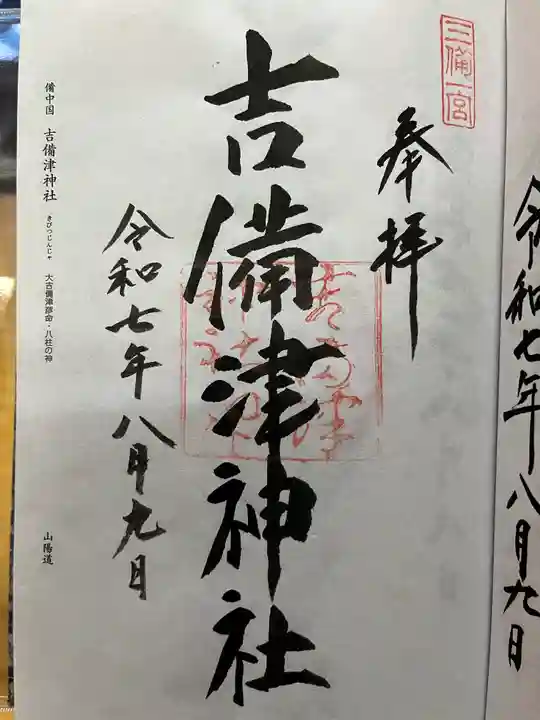 三備一宮
奉拝
吉備津神社
令和七年八月九日
備中国 吉備津神社 大吉備津彦命・八柱の神
きびつじんじゃ
山陽道
令和七年八月九日